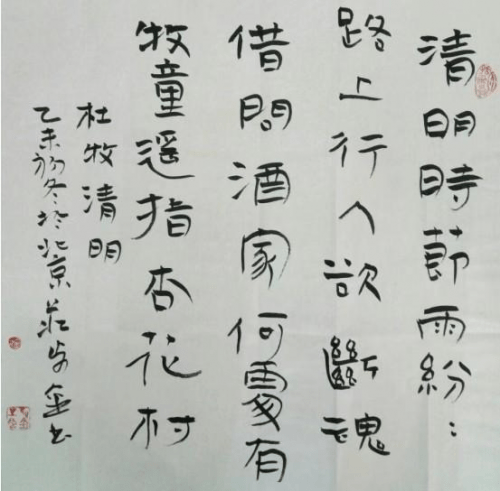 清明時節雨紛:
路上行人欲斷魂
借問酒家何處有
牧童遥指杏花村
杜牧清明
乙未初冬於北京